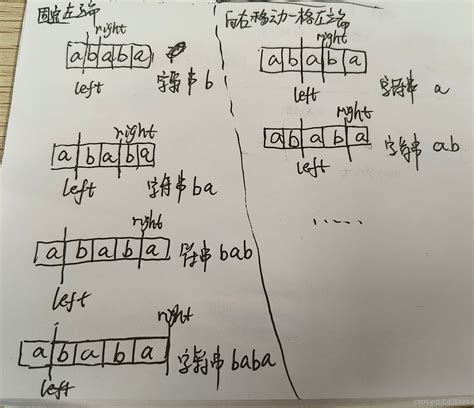 固定左端
right
a b a b a
left
字符串 b
right
a b a b a
left
字符串 ba
right
a b a b a
left
字符串 bab
right
a b a b a
left
字符串 baba
向右移动一格左端
right
a b a b a
left
字符串 a
right
a b a b a
left
字符串 ab
......